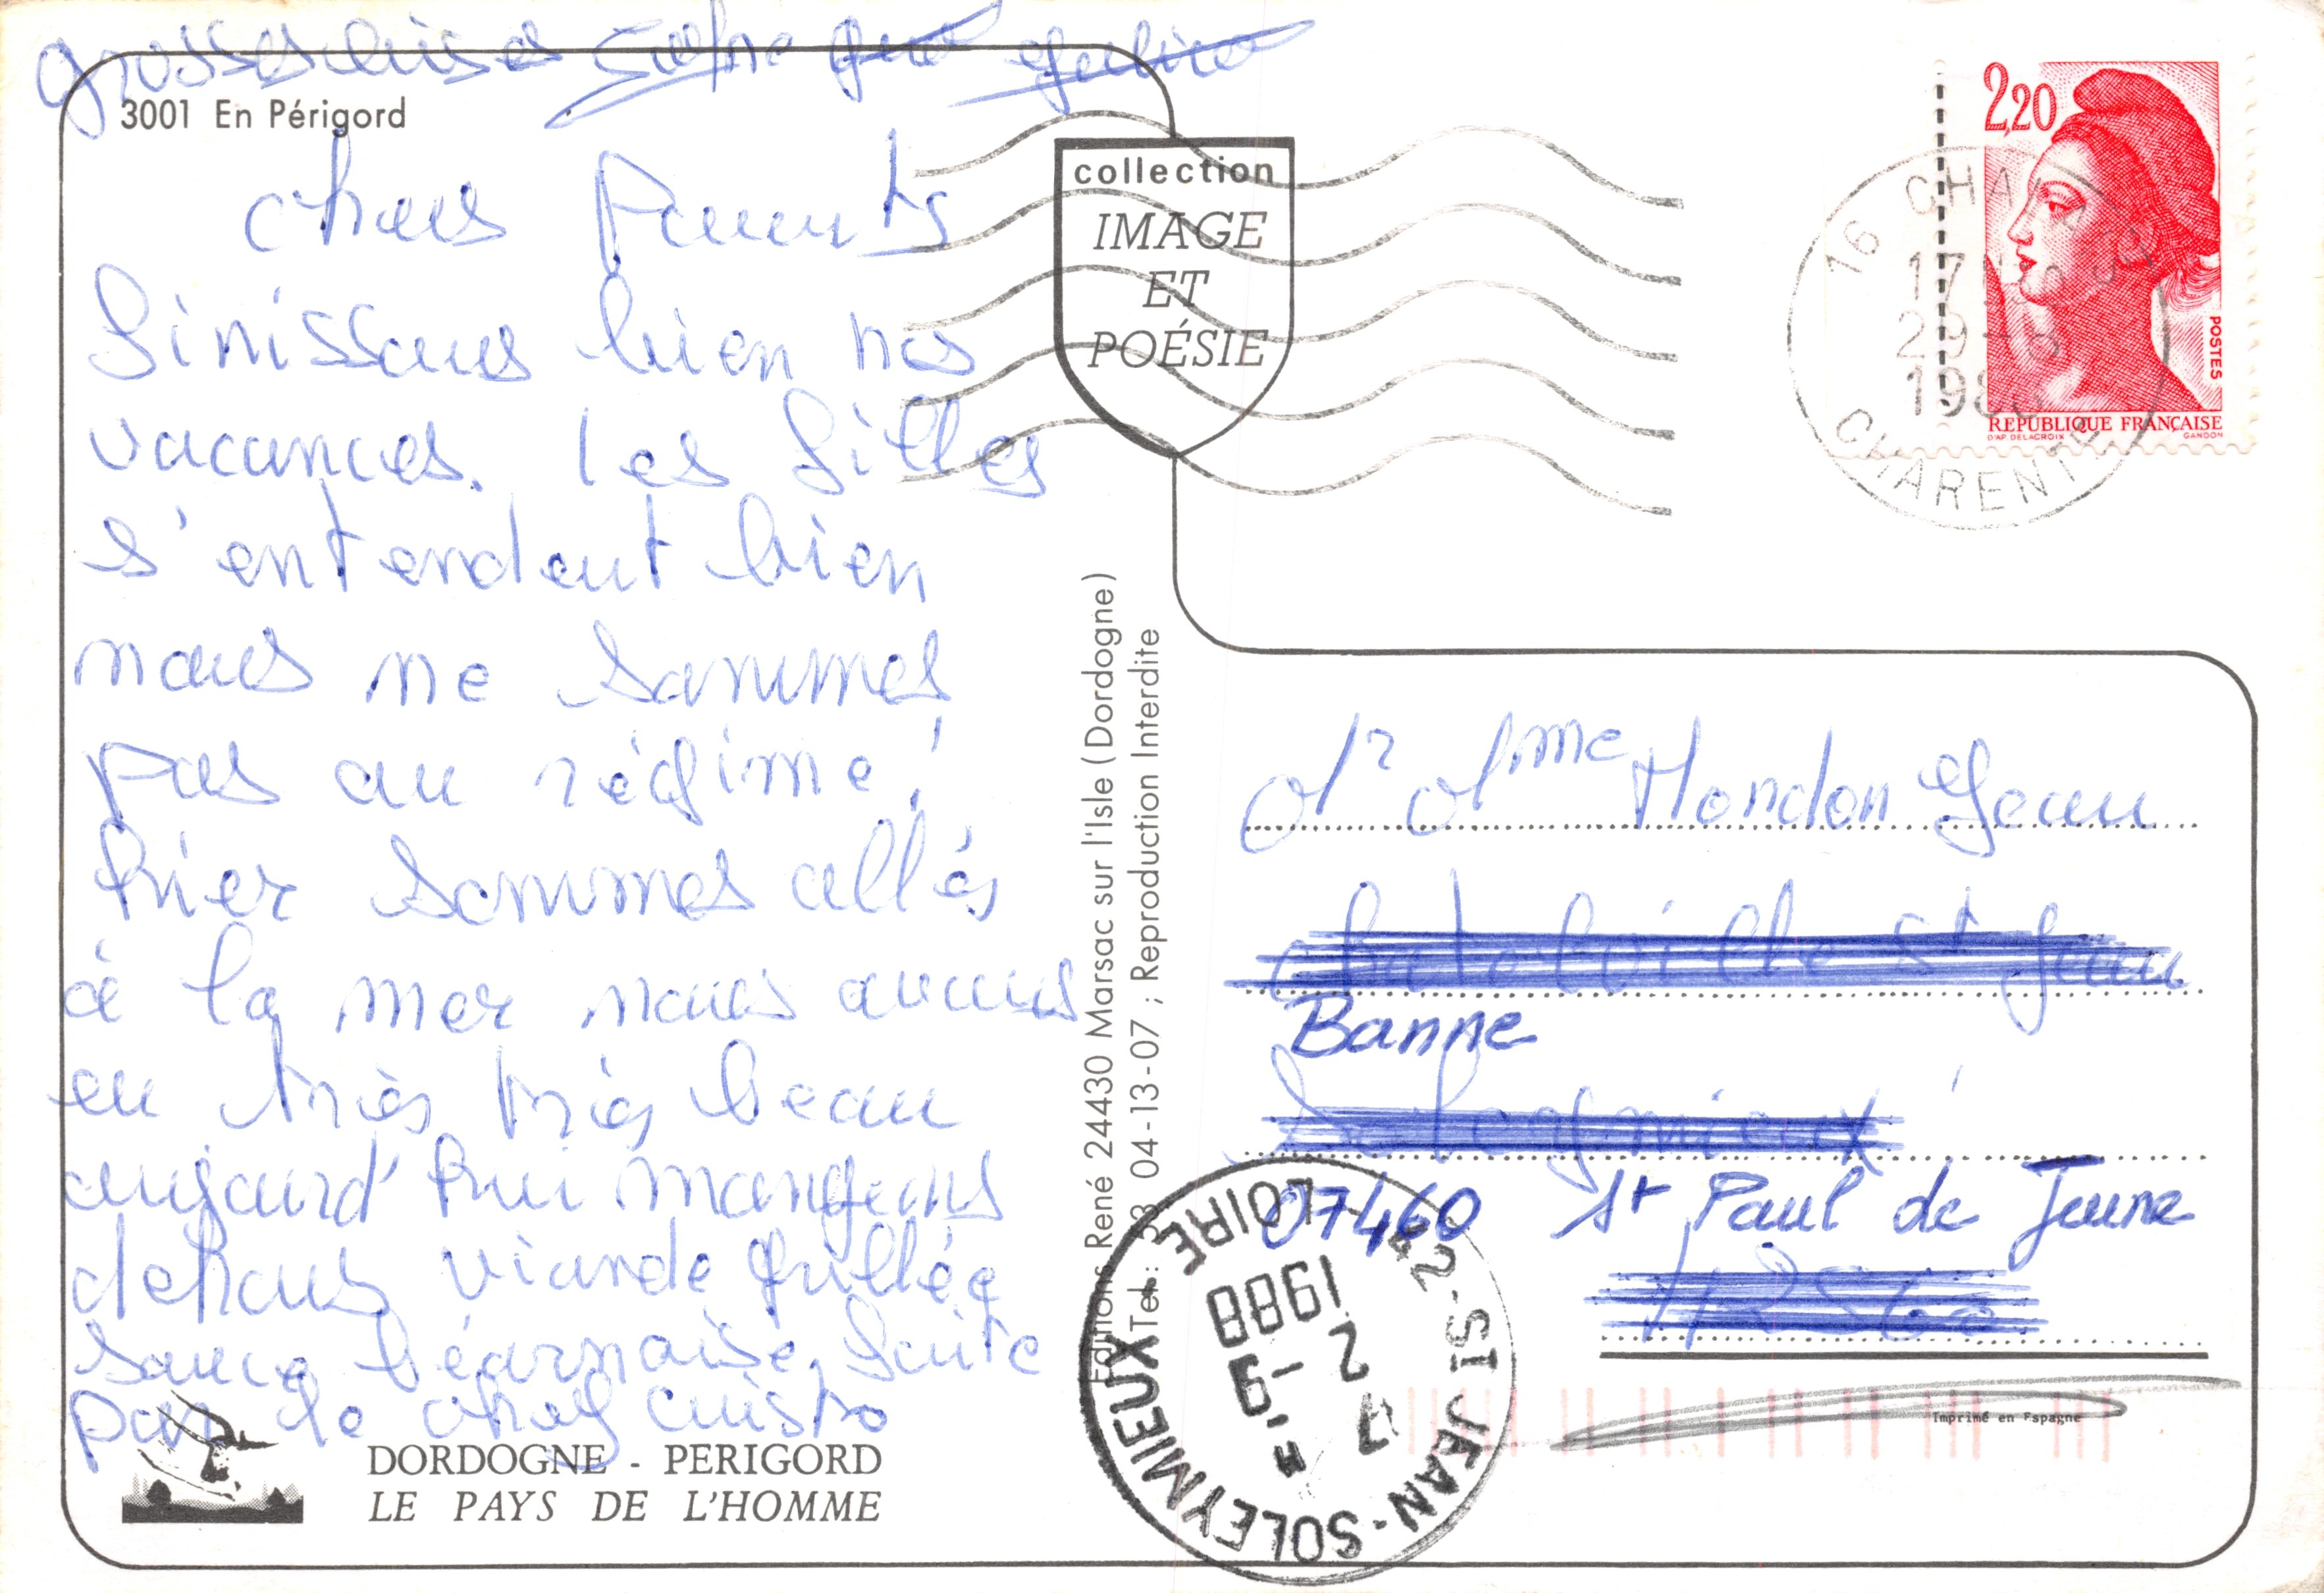 grosses bises
3001 En Périgord
chers Parents
finissons bien nos
vacances. les filles
s'entendent bien
nous ne sommes
pas au régime!
hier sommes allés
à la mer nous avons
eu très très beau
aujourd'hui mangeons
dehors viande grillée
sauce béarnaise, faite
par le chef cuisto
DORDOGNE - PERIGORD
LE PAYS DE L'HOMME
collection
IMAGE
ET
POÉSIE
Editions René 24430 Marsac sur l'Isle (Dordogne)
Tel.: 53 04-13-07 ; Reproduction Interdite
2,20
POSTES
REPUBLIQUE FRANÇAISE
D'AP. DELACROIX GANDON
16
17
29-8
198
CHARENTE
Mr Mme Mondon Jean
Banne
07460 St Paul de Jeune
42-ST JEAN-SOLEYMIEUX
LOIRE
1988
2-9
Imprimé en Espagne